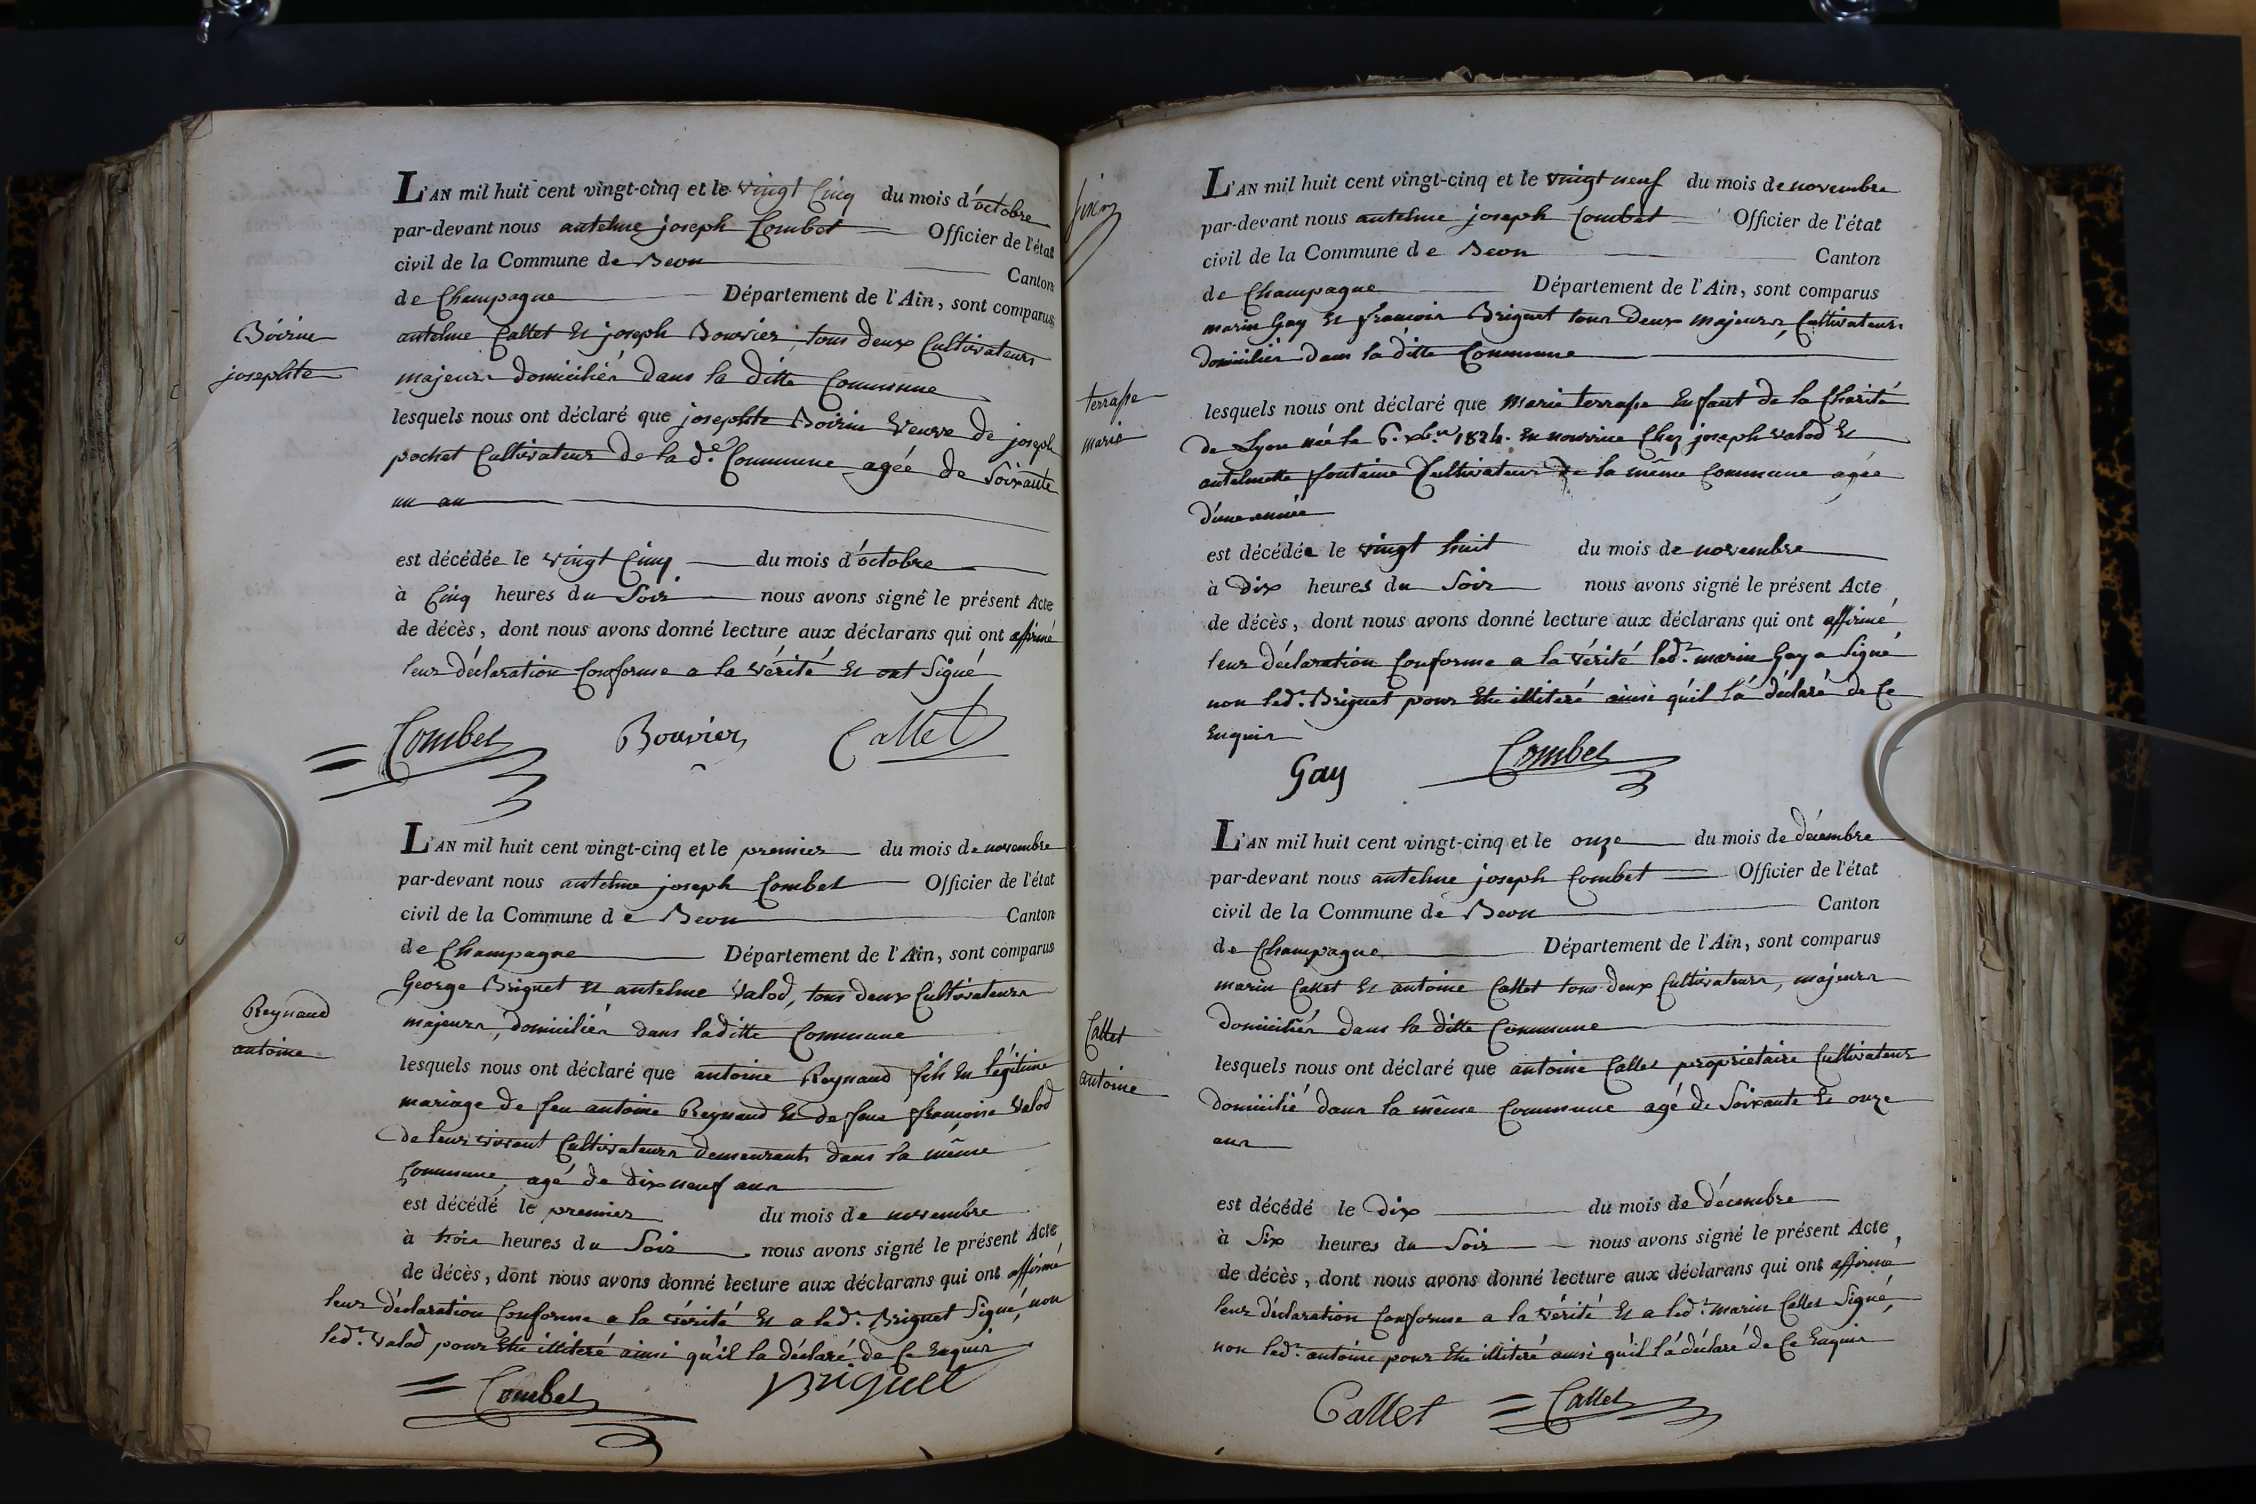 L'AN mil huit cent vingt-cinq et le vingt Cinq du mois d'octobre
par-devant nous antelme joseph Combet Officier de l'état
civil de la Commune de Beon Canton
de Champagne Département de l'Ain, sont comparus
Boirin
josephte
antelme Callet Et joseph Bouvier, tous deux Cultivateurs
majeurs domiciliés dans la ditte Commune
lesquels nous ont déclaré que josephte Boirin Veuve de joseph
pochet Cultivateur de la de. Commune agée de Soixante
un an
est décédée le vingt Cinq du mois d'octobre
à Cinq heures du Soir nous avons signé le présent Acte
de décès, dont nous avons donné lecture aux déclarans qui ont affirmé
leur déclaration Conforme a la vérité Et ont Signé
Combet Bouvier Callet
L'AN mil huit cent vingt-cinq et le premier du mois de novembre
par-devant nous antelme joseph Combet Officier de l'état
civil de la Commune de Beon Canton
de Champagne Département de l'Ain, sont comparus
Reynaud
antoine
George Briguet Et antelme Valod, tous deux Cultivateurs
majeurs, domiciliés dans laditte Commune
lesquels nous ont déclaré que antoine Reynaud fils En légitime
mariage de feu antoine Reynaud Et de feue françoise Valod
de leur vivant Cultivateurs demeurants dans la même
Commune, agé de dix neuf ans
est décédé le premier du mois de novembre
à trois heures du Soir nous avons signé le présent Acte
de décès, dont nous avons donné lecture aux déclarans qui ont affirmé
leur déclaration Conforme a la vérité Et a ledr. Briguet Signé, non
ledr. Valod pour Etre illiteré ainsi qu'il la déclaré de Ce Enquis
Combet Briguet
L'AN mil huit cent vingt-cinq et le vingt neuf du mois de novembre
par-devant nous antelme joseph Combet Officier de l'état
civil de la Commune de Beon Canton
de Champagne Département de l'Ain, sont comparus
marin Gay Et françois Briguet tous Deux majeurs, Cultivateurs
domiciliés dans la ditte Commune
terrasse
marie
lesquels nous ont déclaré que marie terrasse Enfant de la Charité
de Lyon née le 6. xbre. 1824. En nourrice Chez joseph Valod Et
antelmette fontaine Cultivateurs de la même Commune agée
d'une année
est décédée le vingt huit du mois de novembre
à Dix heures du Soir nous avons signé le présent Acte
de décès, dont nous avons donné lecture aux déclarans qui ont affirmé
leur déclaration Conforme a la vérité ledr. marin Gay a Signé
non ledr. Briguet pour Etre illiteré ainsi qu'il l'a déclaré de Ce
Enquis
Gay Combet
L'AN mil huit cent vingt-cinq et le onze du mois de décembre
par-devant nous antelme joseph Combet Officier de l'état
civil de la Commune de Beon Canton
de Champagne Département de l'Ain, sont comparus
marin Callet Et antoine Callet tous deux Cultivateurs, majeurs
domiciliés dans la ditte Commune
Callet
antoine
lesquels nous ont déclaré que antoine Callet propriétaire Cultivateur
domicilié dans la même Commune agé de Soixante Et onze
ans
est décédé le Dix du mois de décembre
à Six heures du Soir nous avons signé le présent Acte,
de décès, dont nous avons donné lecture aux déclarans qui ont affirmé
leur déclaration Conforme a la vérité Et a ledr. marin Callet Signé,
non ledr. antoine pour Etre illiteré ainsi qu'il l'a déclaré de Ce Enquis
Callet Callet